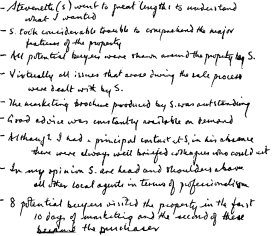 - Stevenette (S) went to great lengths to understand
what I wanted
- S. took considerable trouble to comprehend the major
features of the property
- All potential buyers were shown around the property by S.
- Virtually all issues that arose during the sale process
were dealt with by S.
- The marketing brochure produced by S. was outstanding
- Good advice was constantly available on demand
- Although I had a principal contact at S, in his absence
there were always well briefed colleagues who could act
- In my opinion S. are head and shoulders above
all other local agents in terms of professionalism
- 8 potential buyers visited the property in the first
10 days of marketing and the second of these
became the purchaser